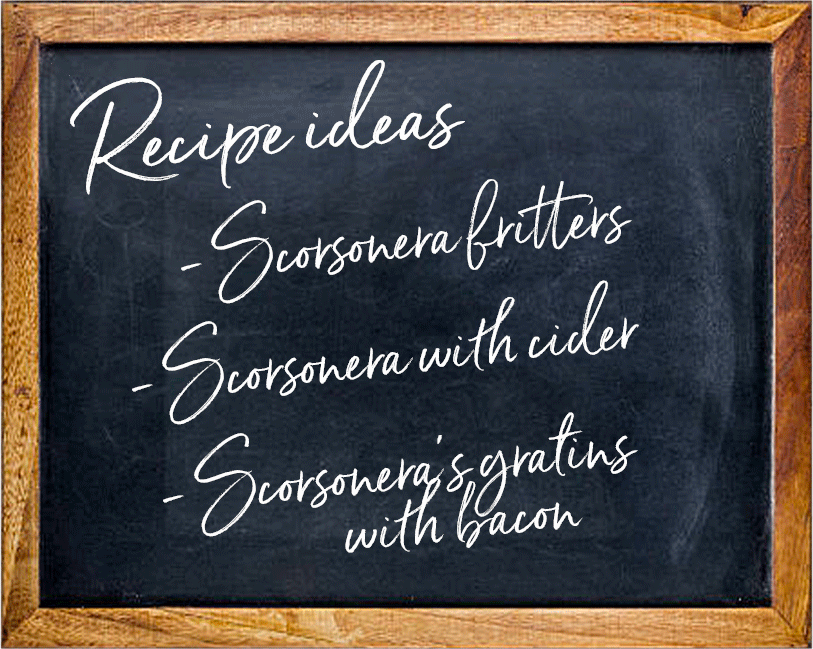 Recipe ideas
- Scorsonera fritters
- Scorsonera with cider
- Scorsonera's gratins
with bacon